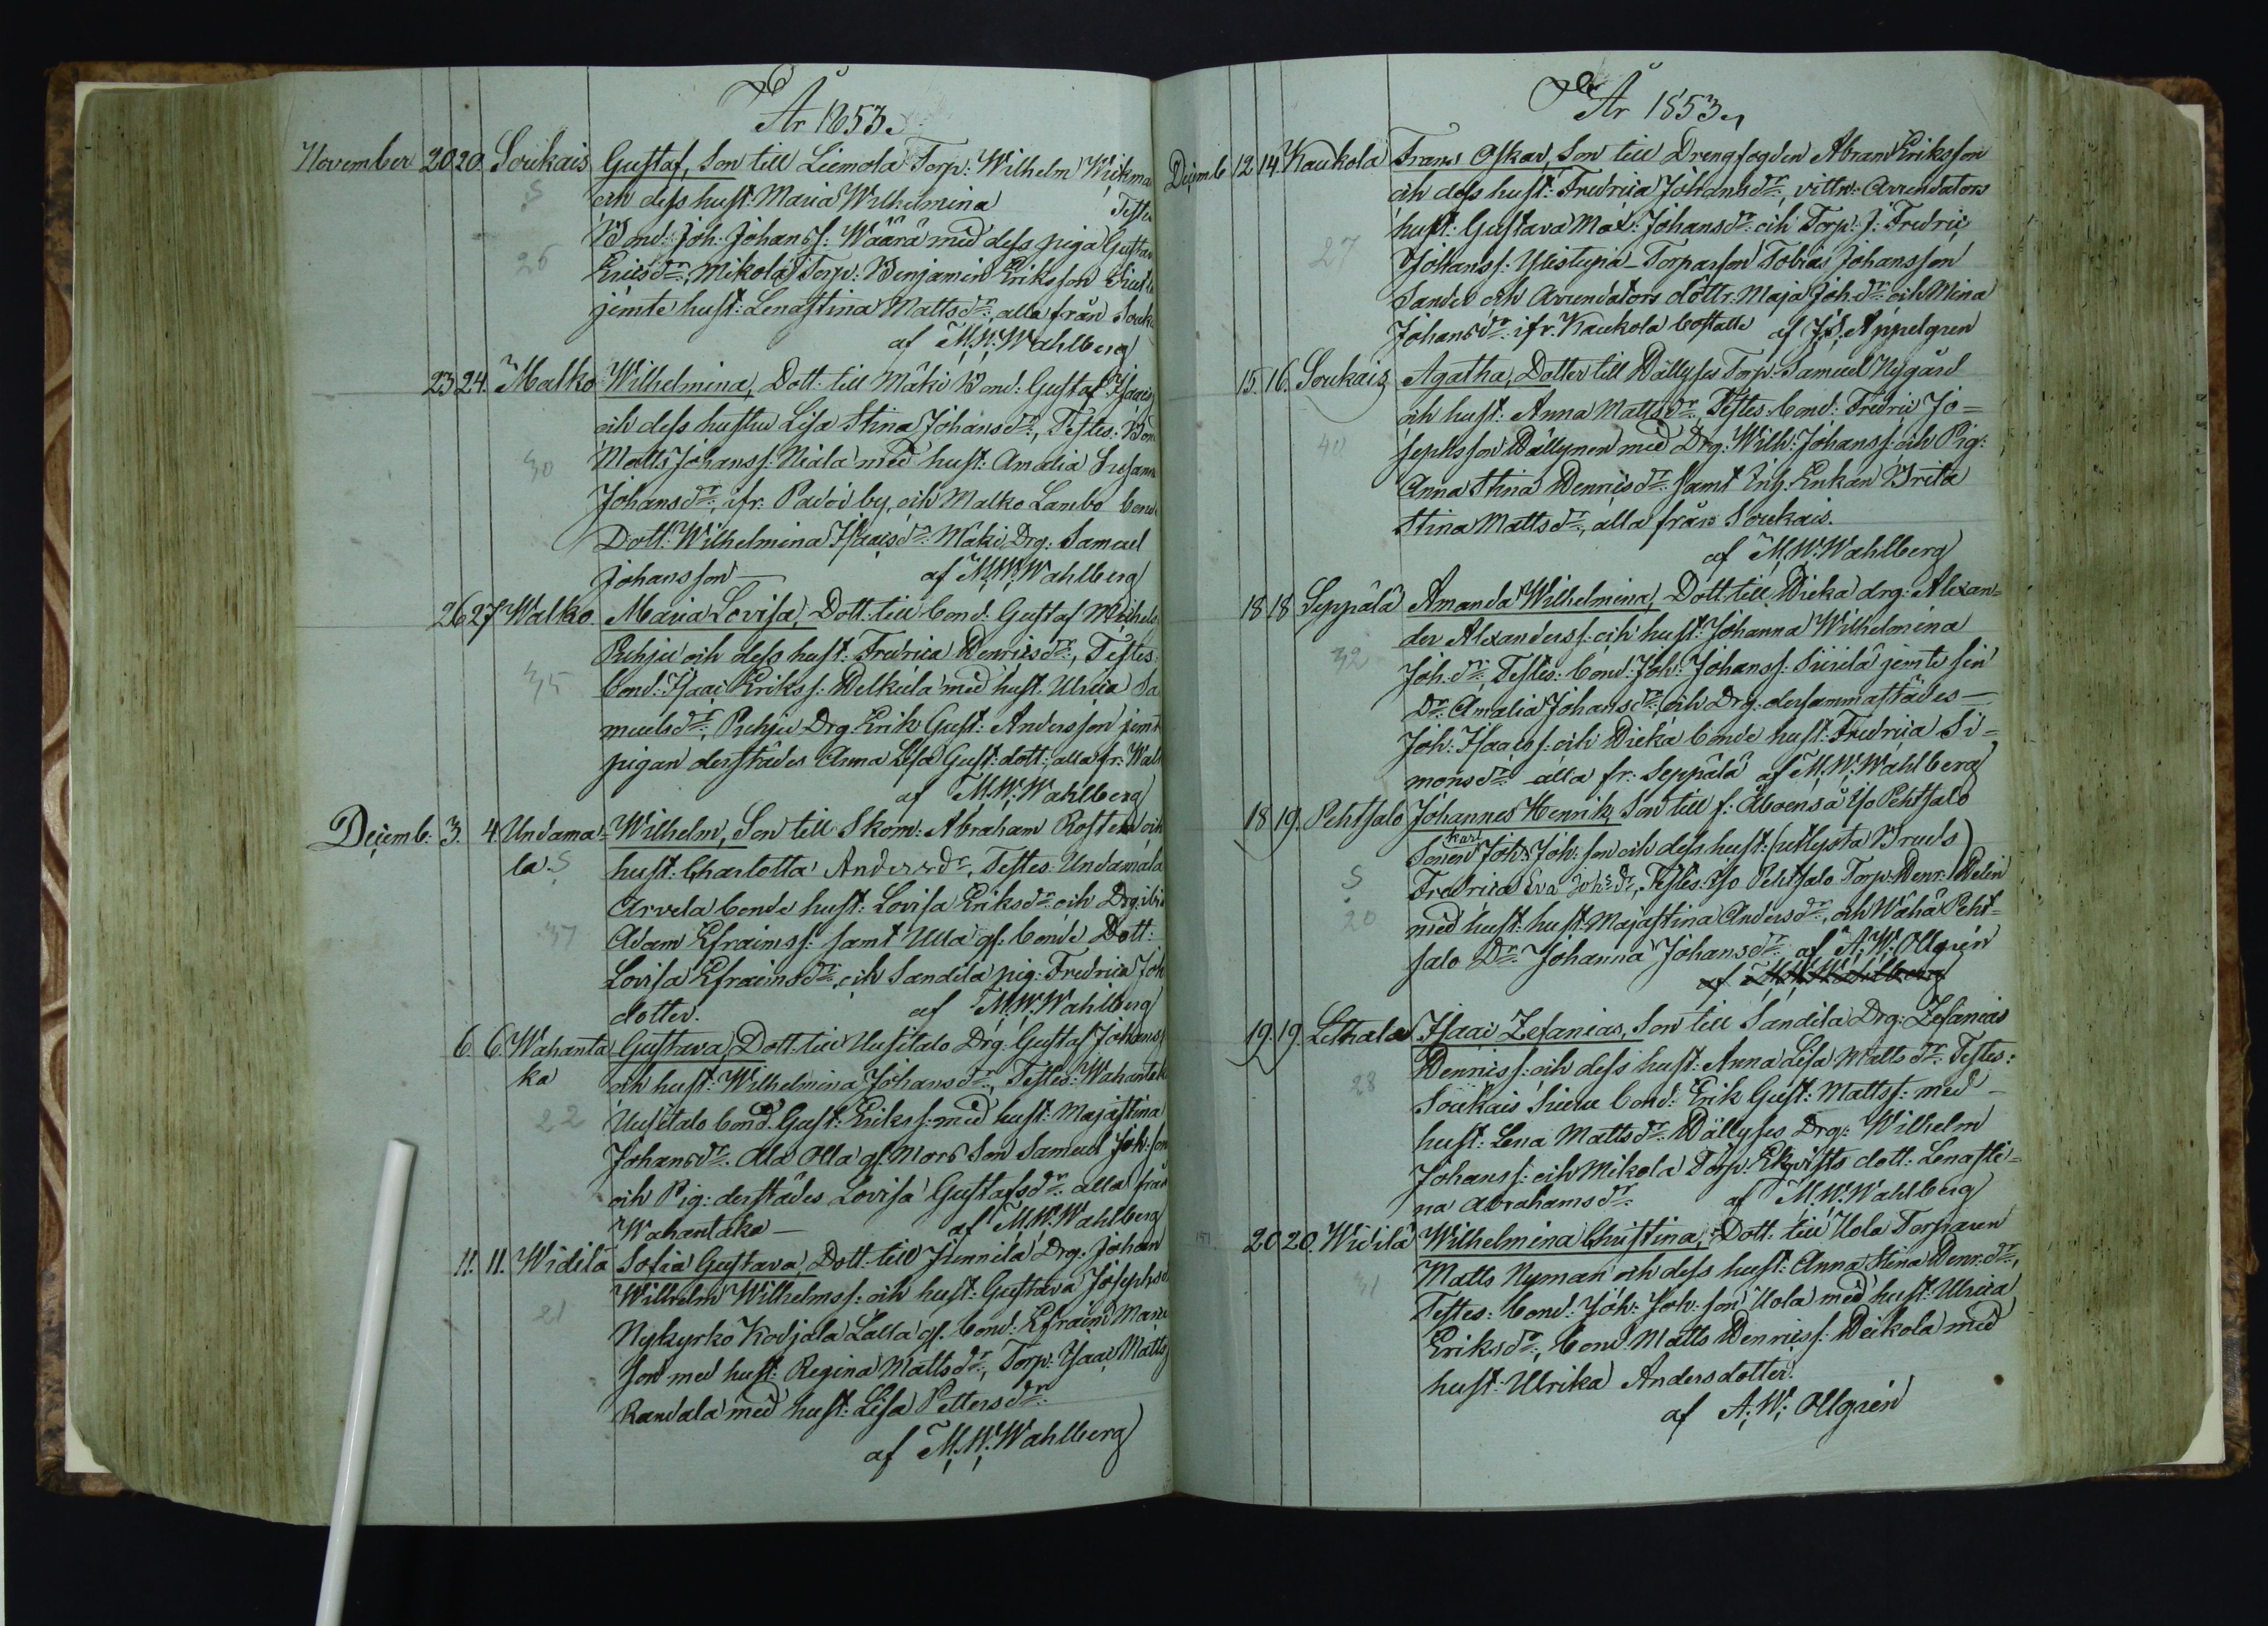 År 1853.
November 20 20. Soukais Gustaf, Son till Liemola Torp: Wilhelm Wikma
S och dess hust: Maria Wilhelmina Teste
26 Bond: Joh: Johanss: Wäärä med dess piga Gustav
Ericsdr: Mikola Torp: Benjamin Eriksson
jemte hust: Lenastina Mattsdr:, alla från Souk
af M.W. Wahlberg
23 24. Malko Wilhelmina, Dott: till Mäki Bond: Gustaf Isaacs
och dess hustru Lisa Stina Johansdr:, Testes: Bon
30 Matts Johanss: Niala med hust: Amalia Susann
Johansdr:, ifr: Padoi by, och Malko Lambo bond
Dott: Wilhelmina Isaacsdr: Mäki Drg: Samuel
Johansson — af M.W. Wahlberg
26 27 Walko. Maria Lovisa, Dott: till bond: Gustaf Mihels
Puhju och dess hust: Fredrica Henricsdr:, Testes:
35 bond: Isaac Erikss: Welkula med hust: Ulrica Sa
muelsdr:, Puhju Drg Erik Gust: Andersson jemt
pigan derstädes Anna Lisa Gust: dott:, alla fr: Walk
af M.W. Wahlberg
Decemb: 3. 4. Undama= Wilhelm, Son till Skom: Abraham Rosten och
la. S hust: Charlotta Andersdr, Testes: Undamala
Arvela bonde hust: Lovisa Eriksdr: och Drg: ibid
37 Adam Efraimss: samt Ulla gl: bonde Dott:
Lovisa Efraimsdr:, och Sandila pig: Fredrica Joh
dotter. af M.W. Wahlberg
6. 6. Wahanta Gustava, Dott: till Uusitalo Drg: Gustaf Johans
ka och hust: Wilhelmina Johansdr:, Testes: Wahantak
22 Uusitalo bond. Gust: Erikss: med hust: Majastina
Johansdr:. Ala Olla gl. Mors Son Samuel Joh: son
och Pig: derstädes Lovisa Gustafsdr: alla från
Wahantaka — af M.W. Wahlberg
11. 11. Widilä Sofia Gustava, Dott: till Jinnilä Drg: Johan
Wilhelm Wilhelmss: och hust: Gustava Josephsd
21 Nykyrko Kodjala Lalla gl: bond: Efraim Mar
son med hust: Regina Mattsdr:, Torp: Isaac Matts
Randala med hust: Lisa Pettersdr:
af M.W. Wahlberg
År 1853.
Decemb 12 14. Kaukola Frans Oskar, Son till Drengfogden Abram Eriksson
och dess hust: Fredrica Johansdr:, vittn: Arrendators
hust: Gustava Mat: Johansdr: och Torp: J: Fredric
27 Johanss: Ylistupa — Torparson Tobias Johansson
Sandel och Arrendators döttr: Maja Joh: dr: och Mina
Johansdr: ifr: Kaukola boställe af J.S. Appelgren
15. 16. Soukais Agatha, Dotter till Dällyses Torp: Samuel Nygård
och hust: Anna Mattsdr:, Testes: bond: Fredric Jo=
40 sephsson Dällynen med Drg: Wilh: Johanss: och Pig:
Anna Stina Henricsdr: samt Inh: Enkan Brita
Stina Mattsdr:, alla från Soukais.
af M.W. Wahlberg
18 18 Seppälä Amanda Wilhelmina, Dott: till Dieka drg: Alexan=
der Alexanderss: och hust: Johanna Wilhelmina
32 Joh: dr: Testes: bond: Joh: Johanss: Siirilä jemte sin
Dr: Amalia Johansdr:, och Drg: dersammastädes —
Joh: Isaacss: och Dieka bonde hust: Fredrica Si=
monsdr: alla fr: Seppälä af M.W. Wahlberg
18 19. Pehtsalo Johannes Henrik, Son till f: Åboensa Yso Pehtsalo
Sonen Karl Joh: Joh: son och dess hust: (utlysta Bruds)
S Fredrica Eva Johsdr, Testes: Yso Pehtsalo Torp: Henr: Helin
20 med hust: hust: Majastina Andersdr:, och Wähä Peht=
salo Dr: Johanna Johansdr: af A.W. Ollgrén
af M.W. Wahlberg
19. 19. Lethala Isaac Zefanias, Son till Sandila Drg: Zefanias
Henricss: och dess hust: Anna Lisa Mattsdr: Testes:
28 Soukais bond: Erik Gust: Mattss: med —
hust: Lena Mattsdr: Dällyses Drg: Wilhelm
Johanss: och Mikola Torp: Ekqvists dott: Lenasti=
na Abrahamsdr: af M.W. Wahlberg
151. 20 20. Widilä Wilhelmina Christina, Dott: till Uola Torparen
31 Matts Nyman och dess hust: Anna Stina Henr: dr:,
Testes: bond: Joh: Joh: son Uola med hust: Ulrica
Eriksdr:, bond: Matts Henricss: Deikola med
hust: Ulrika Andersdotter.
af A.W. Ollgrén